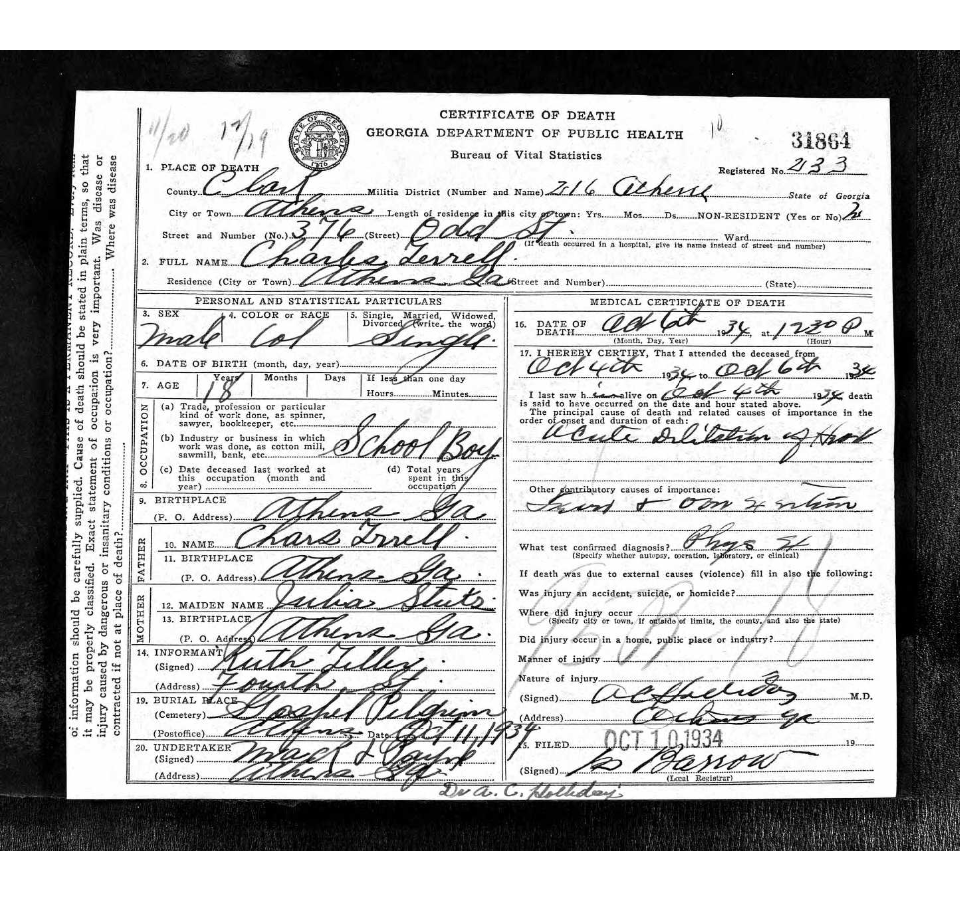 11/20 12/19
STATE OF GEORGIA 1776
CERTIFICATE OF DEATH
GEORGIA DEPARTMENT OF PUBLIC HEALTH
Bureau of Vital Statistics
10
31864
Registered No. 233
1. PLACE OF DEATH
County Clark Militia District (Number and Name) 216 Athens State of Georgia
City or Town Athens Length of residence in this city or town: Yrs. Mos. Ds. NON-RESIDENT (Yes or No)
Street and Number (No.) 376 (Street) Odd St. Ward
(If death occurred in a hospital, give its name instead of street and number)
2. FULL NAME Charles Terrell.
Residence (City or Town) Athens Ga (Street and Number) (State)
PERSONAL AND STATISTICAL PARTICULARS
3. SEX 4. COLOR or RACE 5. Single, Married, Widowed, Divorced (write the word)
Male Col Single.
6. DATE OF BIRTH (month, day, year)
7. AGE Years Months Days If less than one day
18 Hours Minutes
8. OCCUPATION
(a) Trade, profession or particular
kind of work done, as spinner,
sawyer, bookkeeper, etc.
(b) Industry or business in which
work was done, as cotton mill,
sawmill, bank, etc. School Boy
(c) Date deceased last worked at
this occupation (month and
year)
(d) Total years
spent in this
occupation
9. BIRTHPLACE
(P. O. Address) Athens Ga
FATHER
10. NAME Chars Trrell.
11. BIRTHPLACE
(P. O. Address) Athens Ga.
MOTHER
12. MAIDEN NAME Julia
13. BIRTHPLACE
(P. O. Address) Athens Ga.
14. INFORMANT
(Signed) Ruth
(Address) Fourth St.
19. BURIAL PLACE
(Cemetery) Gospel Pilgrim
(Postoffice) Athens Date Oct 11, 1934
20. UNDERTAKER
(Signed) Mack & Payne
(Address) Athens Ga
MEDICAL CERTIFICATE OF DEATH
16. DATE OF DEATH Oct 6th 1934 at 1230 P M
(Month, Day, Year) (Hour)
17. I HEREBY CERTIFY, That I attended the deceased from
Oct 4th 1934 to Oct 6th 1934
I last saw him alive on Oct 4th 1934 death
is said to have occurred on the date and hour stated above.
The principal cause of death and related causes of importance in the
order of onset and duration of each:
Acute Dilitation of Heart
Other contributory causes of importance:
What test confirmed diagnosis? Phys
(Specify whether autopsy, operation, laboratory, or clinical)
If death was due to external causes (violence) fill in also the following:
Was injury an accident, suicide, or homicide?
Where did injury occur
(Specify city or town, if outside of limits, the county, and also the state)
Did injury occur in a home, public place or industry?
Manner of injury
Nature of injury
(Signed) A C Holliday M.D.
(Address) Athens Ga
15. FILED OCT 10 1934 19
(Signed) Barrow
(Local Registrar)
Dr A. C. Holliday
of information should be carefully supplied. Cause of death should be stated in plain terms, so that
it may be properly classified. Exact statement of occupation is very important. Was disease or
injury caused by dangerous or insanitary conditions or occupation? Where was disease
contracted if not at place of death?